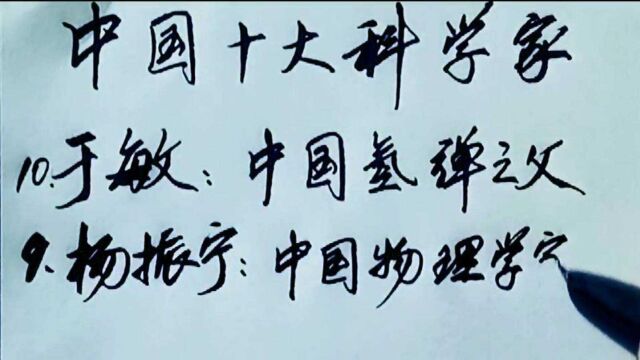 中国十大科学家
10.于敏：中国氢弹之父
9.杨振宁：中国物理学